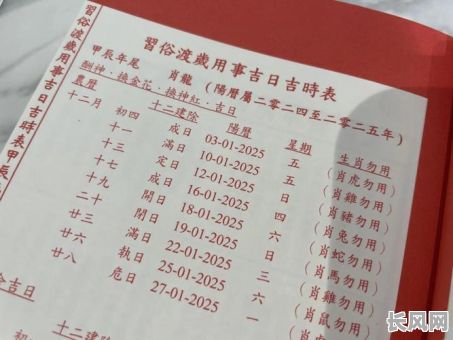 習俗渡歲用事吉日吉時表
甲辰年尾 肖龍 (陽曆屬二○二四至二○二五年)
酬神·換金花·換神紅·吉日
農曆 十二建除 陽曆 星期 生肖勿用
十二月 初四 成日 03-01-2025 五 (肖虎勿用)
十一 滿日 10-01-2025 五 (肖雞勿用)
十三 定日 12-01-2025 日 (肖豬勿用)
十七 成日 16-01-2025 四 (肖兔勿用)
十九 開日 18-01-2025 六 (肖蛇勿用)
二十 閉日 19-01-2025 日 (肖馬勿用)
廿三 滿日 22-01-2025 三 (肖雞勿用)
廿六 執日 25-01-2025 六 (肖鼠勿用)
廿八 危日 27-01-2025 一 (肖虎
金吉日
十二建除
習俗渡歲用事吉日吉時表甲辰
长风网
cfw